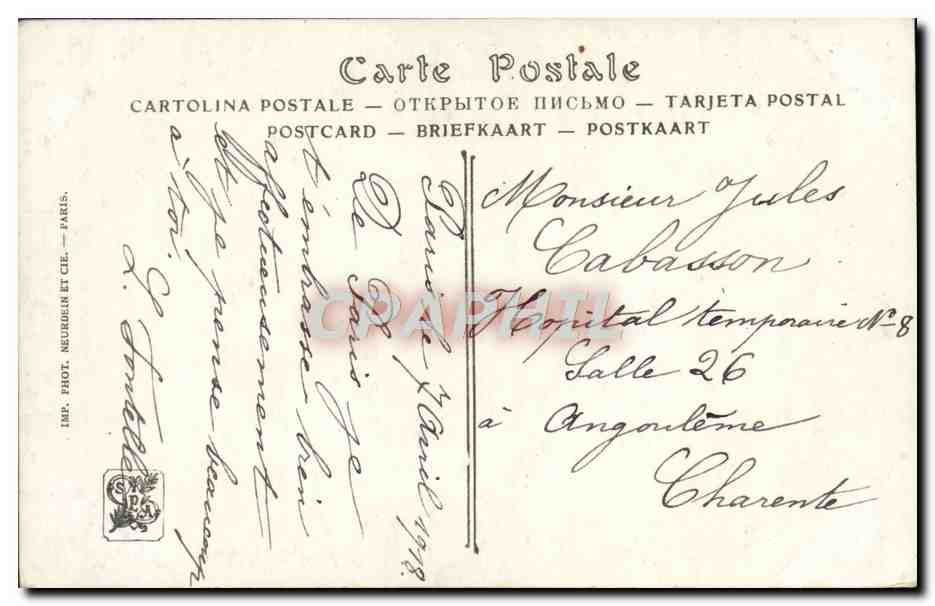 Carte Postale
CARTOLINA POSTALE — ОТКРЫТОЕ ПИСЬМО — TARJETA POSTAL
POSTCARD — BRIEFKAART — POSTKAART
Paris le 7 Avril 1918.
De Paris je
t'embrasse bien
affectueusement
et je pense beaucoup
à toi.
L. Fontelle
Monsieur Jules
Cabasson
Hopital temporaire No 8
Salle 26
à Angoulême
Charente
IMP. PHOT. NEURDEIN ET CIE. — PARIS.
CPAPHIL